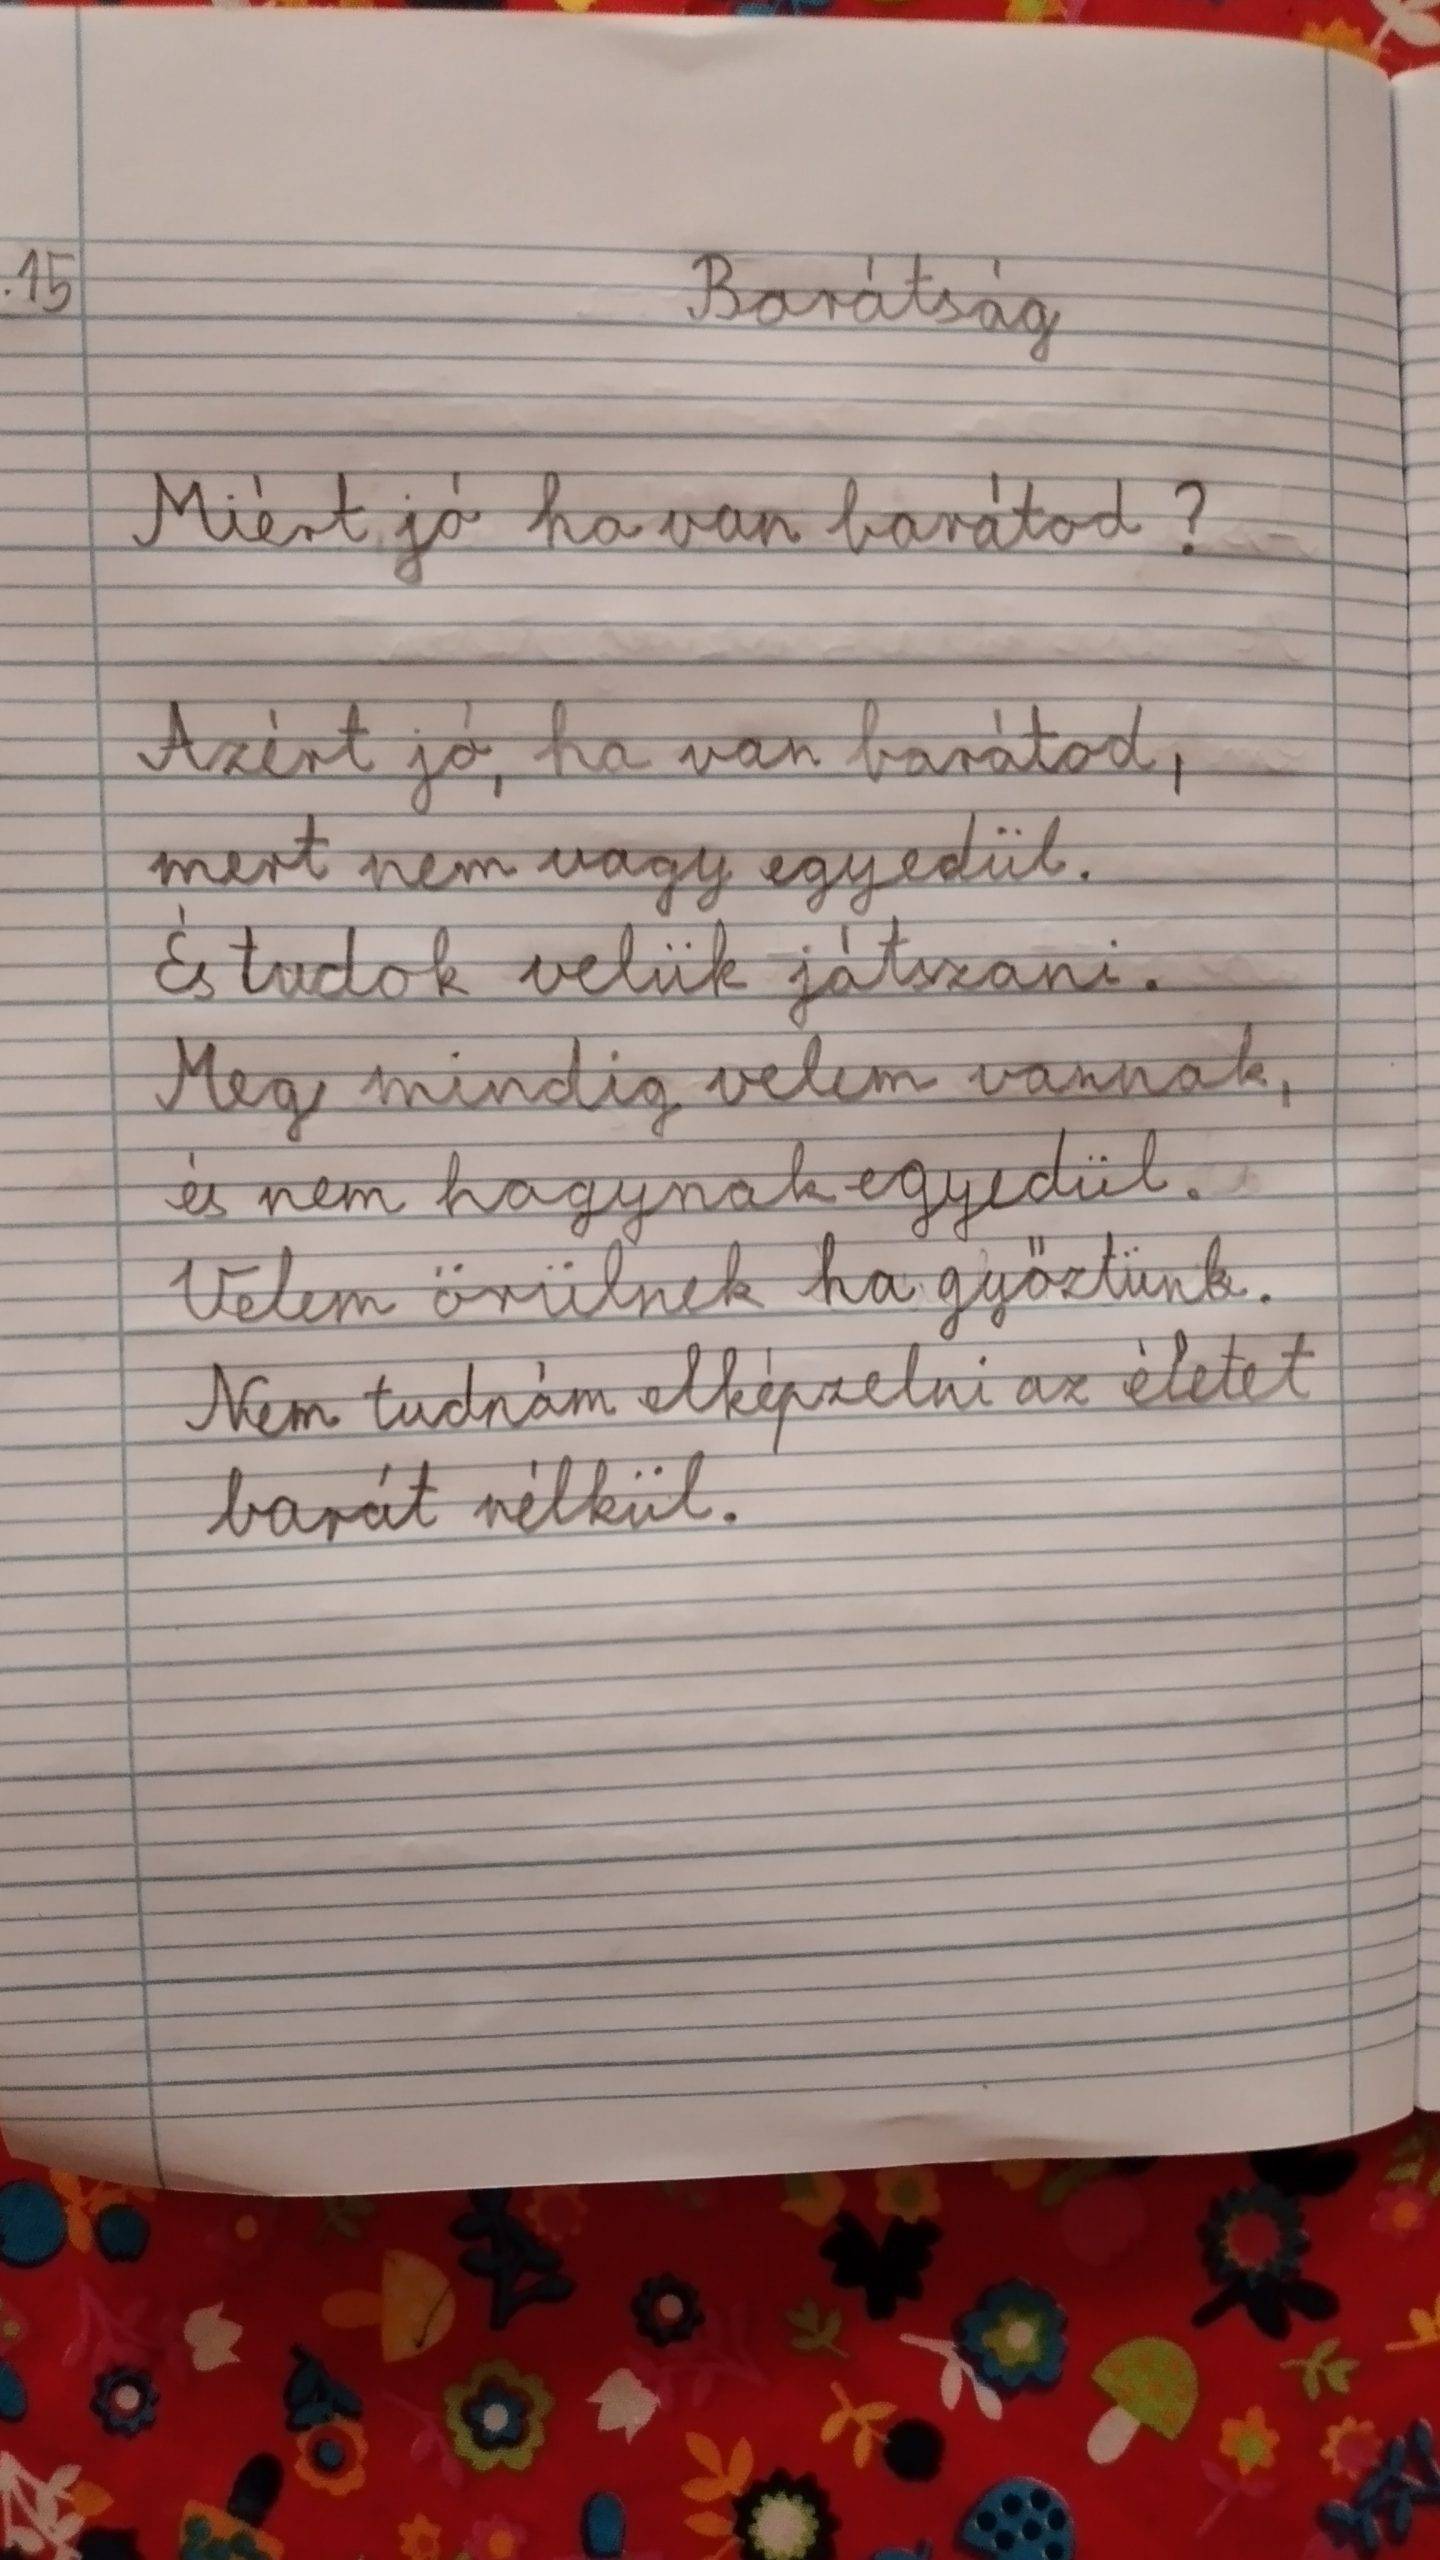 .15
Barátság
Miért jó ha van barátod?
Azért jó, ha van barátod,
mert nem vagy egyedül.
És tudok velük játszani.
Meg mindig velem vannak,
és nem hagynak egyedül.
Velem örülnek ha győztünk.
Nem tudnám elképzelni az életet
barát nélkül.